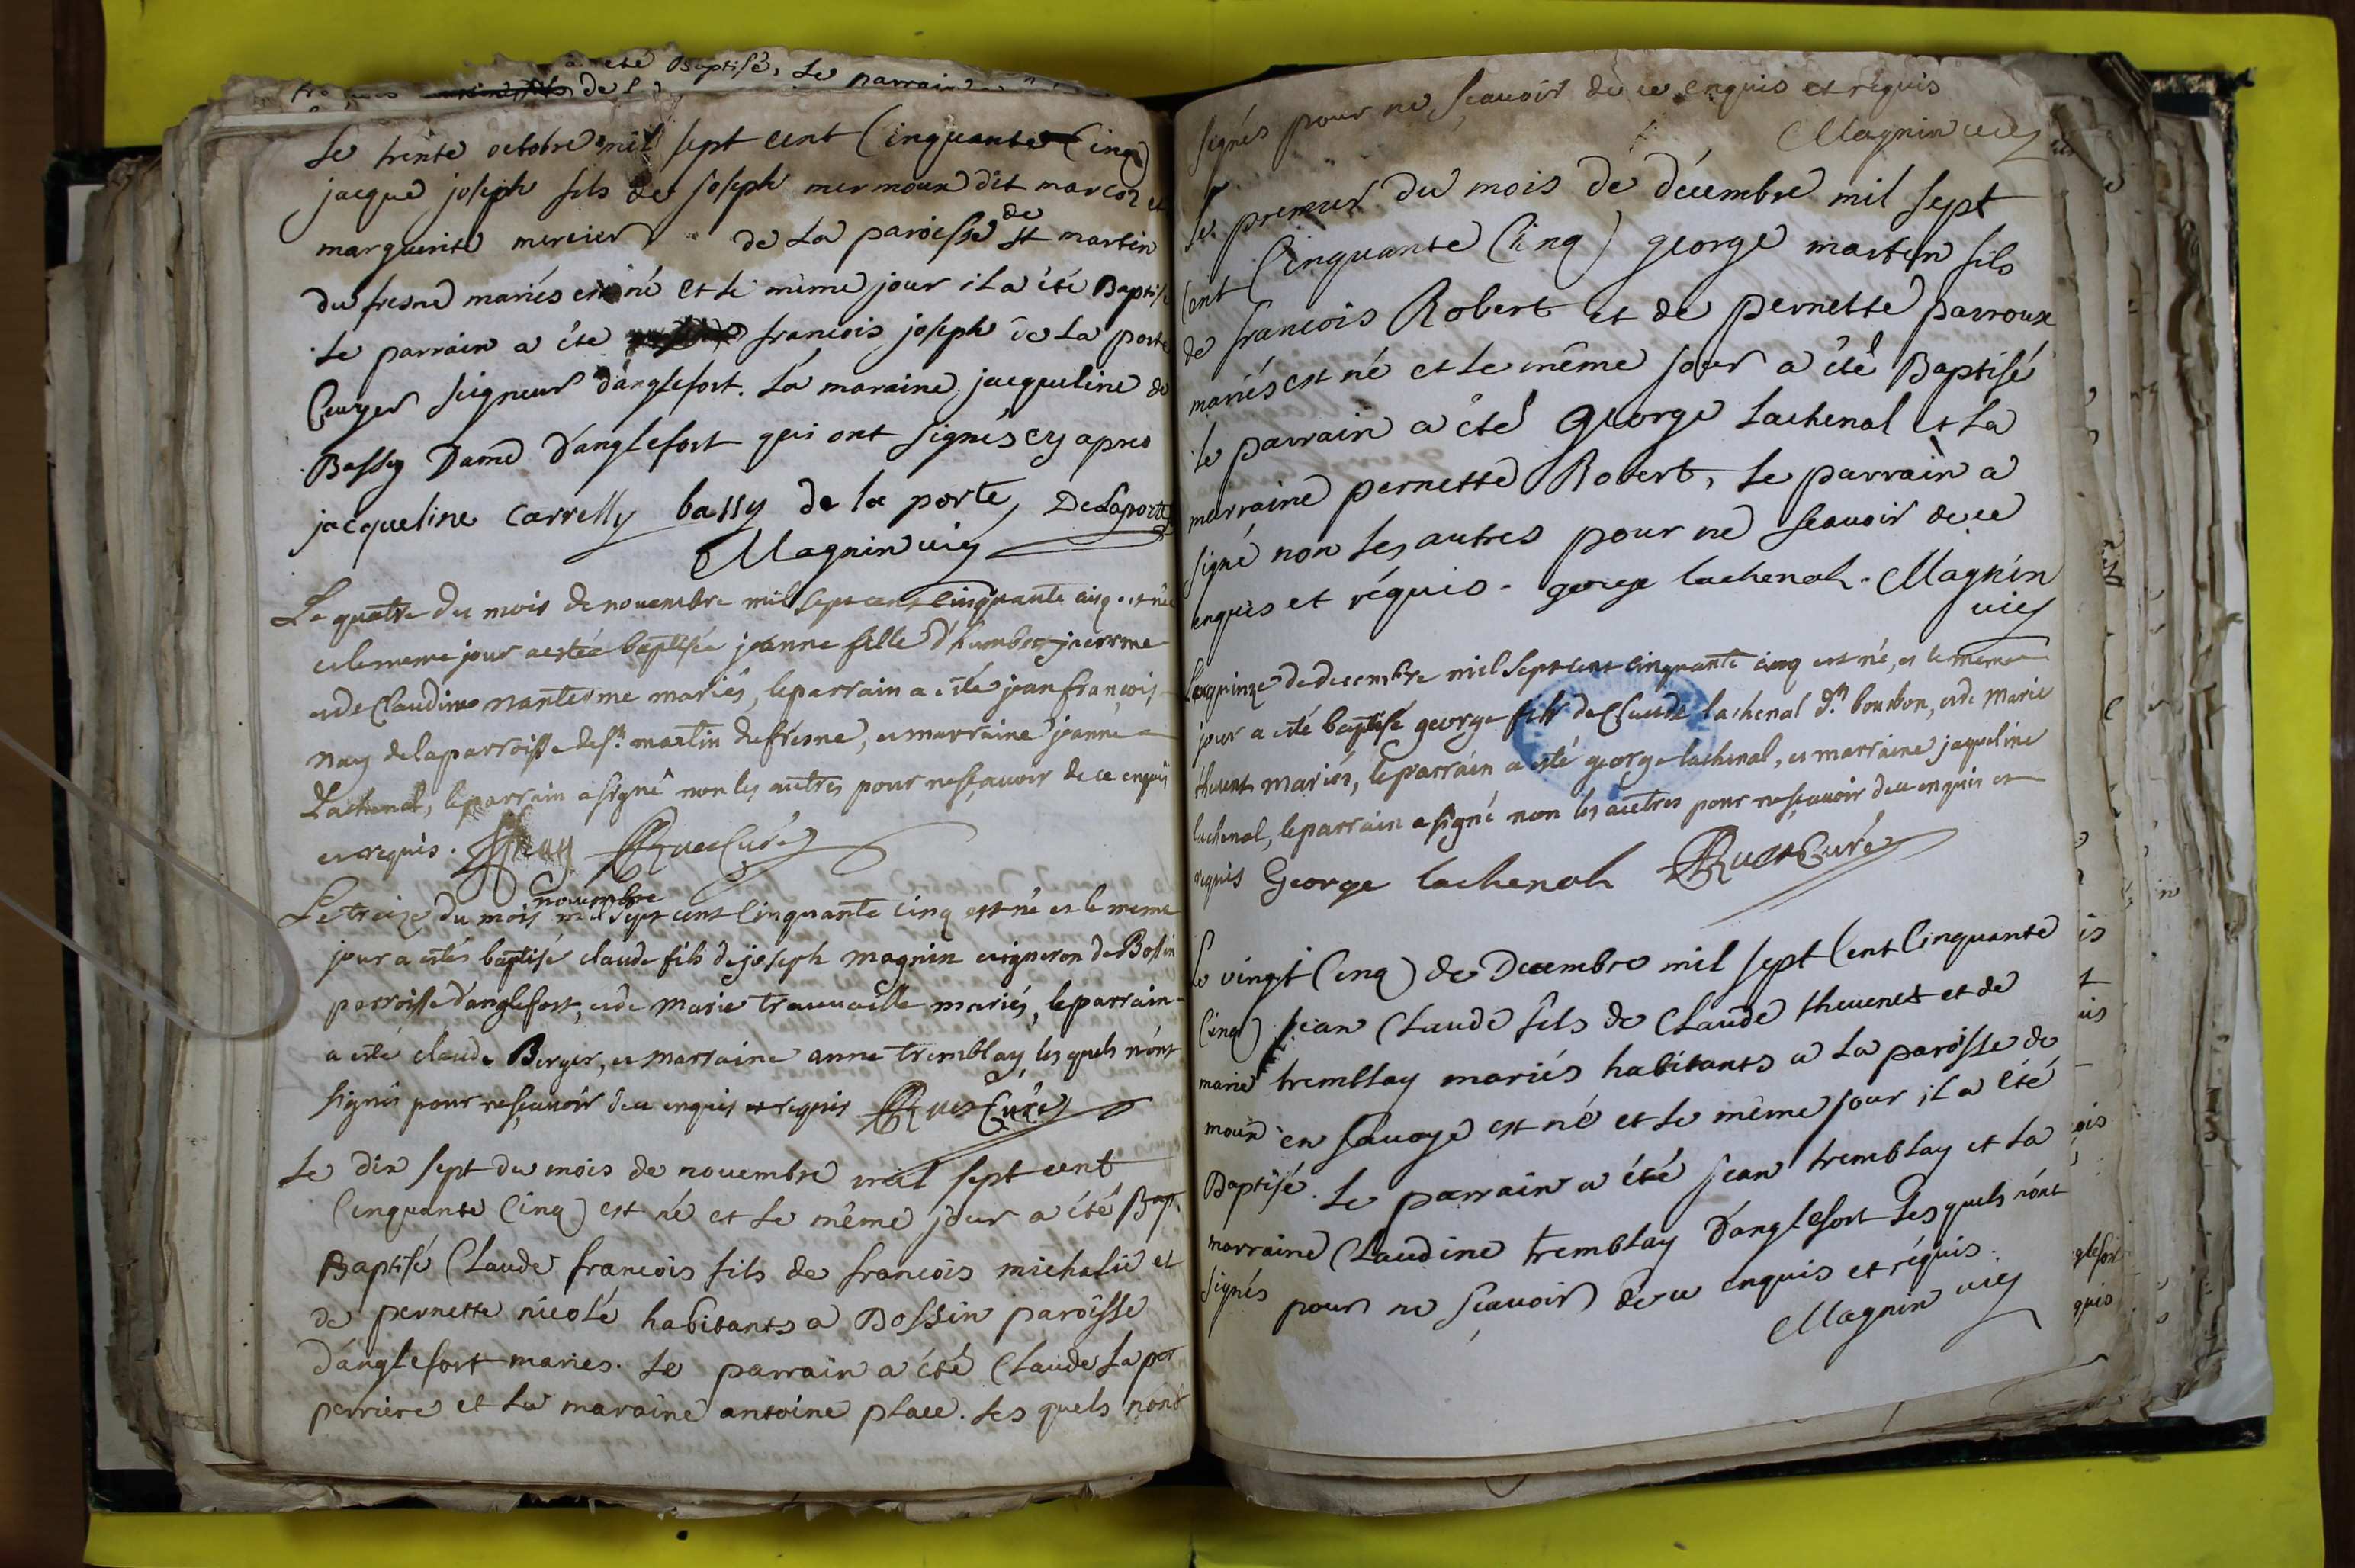 a été Baptisé, Le parrain
Le trente octobre mil sept cent Cinquante Cinq
jacque joseph fils de joseph mermoux dit marcoz et
marguerite mercier de La paroisse de St martin
du fresne mariés est né et le même jour il a été Baptisé
Le parrain a été francois joseph de La porte
Ecuyer seigneur d'anglefort. La maraine jacqueline de
Bassy Dame d'anglefort qui ont signés cy apres
jacqueline Carrelly bassy de la porte DeLaporte
Magnin vic
Le quatre du mois de novembre mil sept cent cinquante cinq est née
et le meme jour a esté baptisée jeanne fille d'humbert
et de Claudine nanterme mariés, le parrain a été jean françois
nay de la parroisse de st. martin du fresne, et marraine jeanne
Lachenal, le parrain a signé non les autres pour ne sçavoir de ce enquis
et requis. nay Curé
Le treize du mois novembre mil sept cent Cinquante cinq est né et le meme
jour a estés baptisé claude fils de joseph magnin vigneron de Bossin
parroisse d'anglefort, et de marie travouaille mariés, le parrain
a esté claude Berger, et marraine anne tremblay, les quels n'ont
signés pour ne sçavoir de ce enquis et requis Curé
Le dix sept du mois de novembre mil sept cent
Cinquante Cinq est né et Le même jour a été Bap
Baptisé Claude francois fils de francois michalie et
de pernette nicolé habitants a Bossin paroisse
d'anglefort maries. Le parrain a été Claude La per
perriere et La maraine antoine place. Les quels n'ont
signés pour ne sçavoir de ce enquis et requis
Magnin vic
Le premier du mois de décembre mil sept
Cent Cinquante Cinq george martin fils
de francois Robert et de pernette parroux
mariés est né et Le même jour a été Baptisé
le parrain a été George Lachenal et La
marraine pernette Robert, Le parrain a
signé non Les autres pour ne sçavoir de ce
enquis et réquis - george lachenal. Magnin
vic
Le quinze de decembre mil sept cent cinquante cinq est né, et le meme
jour a esté baptisé george fils de Claude lachenal dt. bourbon, et de Marie
thevent mariés, le parrain a esté george lachenal, et marraine jaqueline
lachenal, le parrain a signé non les autres pour ne sçavoir de ce enquis et
requis George lachenal Curé
Le vingt Cinq de Decembre mil sept Cent Cinquante
Cinq jean Claude fils de Claude thevenet et de
marie tremblay mariés habitants a La paroisse de
en savoye est né et Le même jour il a été
Baptisé. Le parrain a été jean tremblay et La
marraine Claudine tremblay d'anglefort Lesquels n'ont
signés pour ne sçavoir de ce enquis et réquis.
Magnin vic